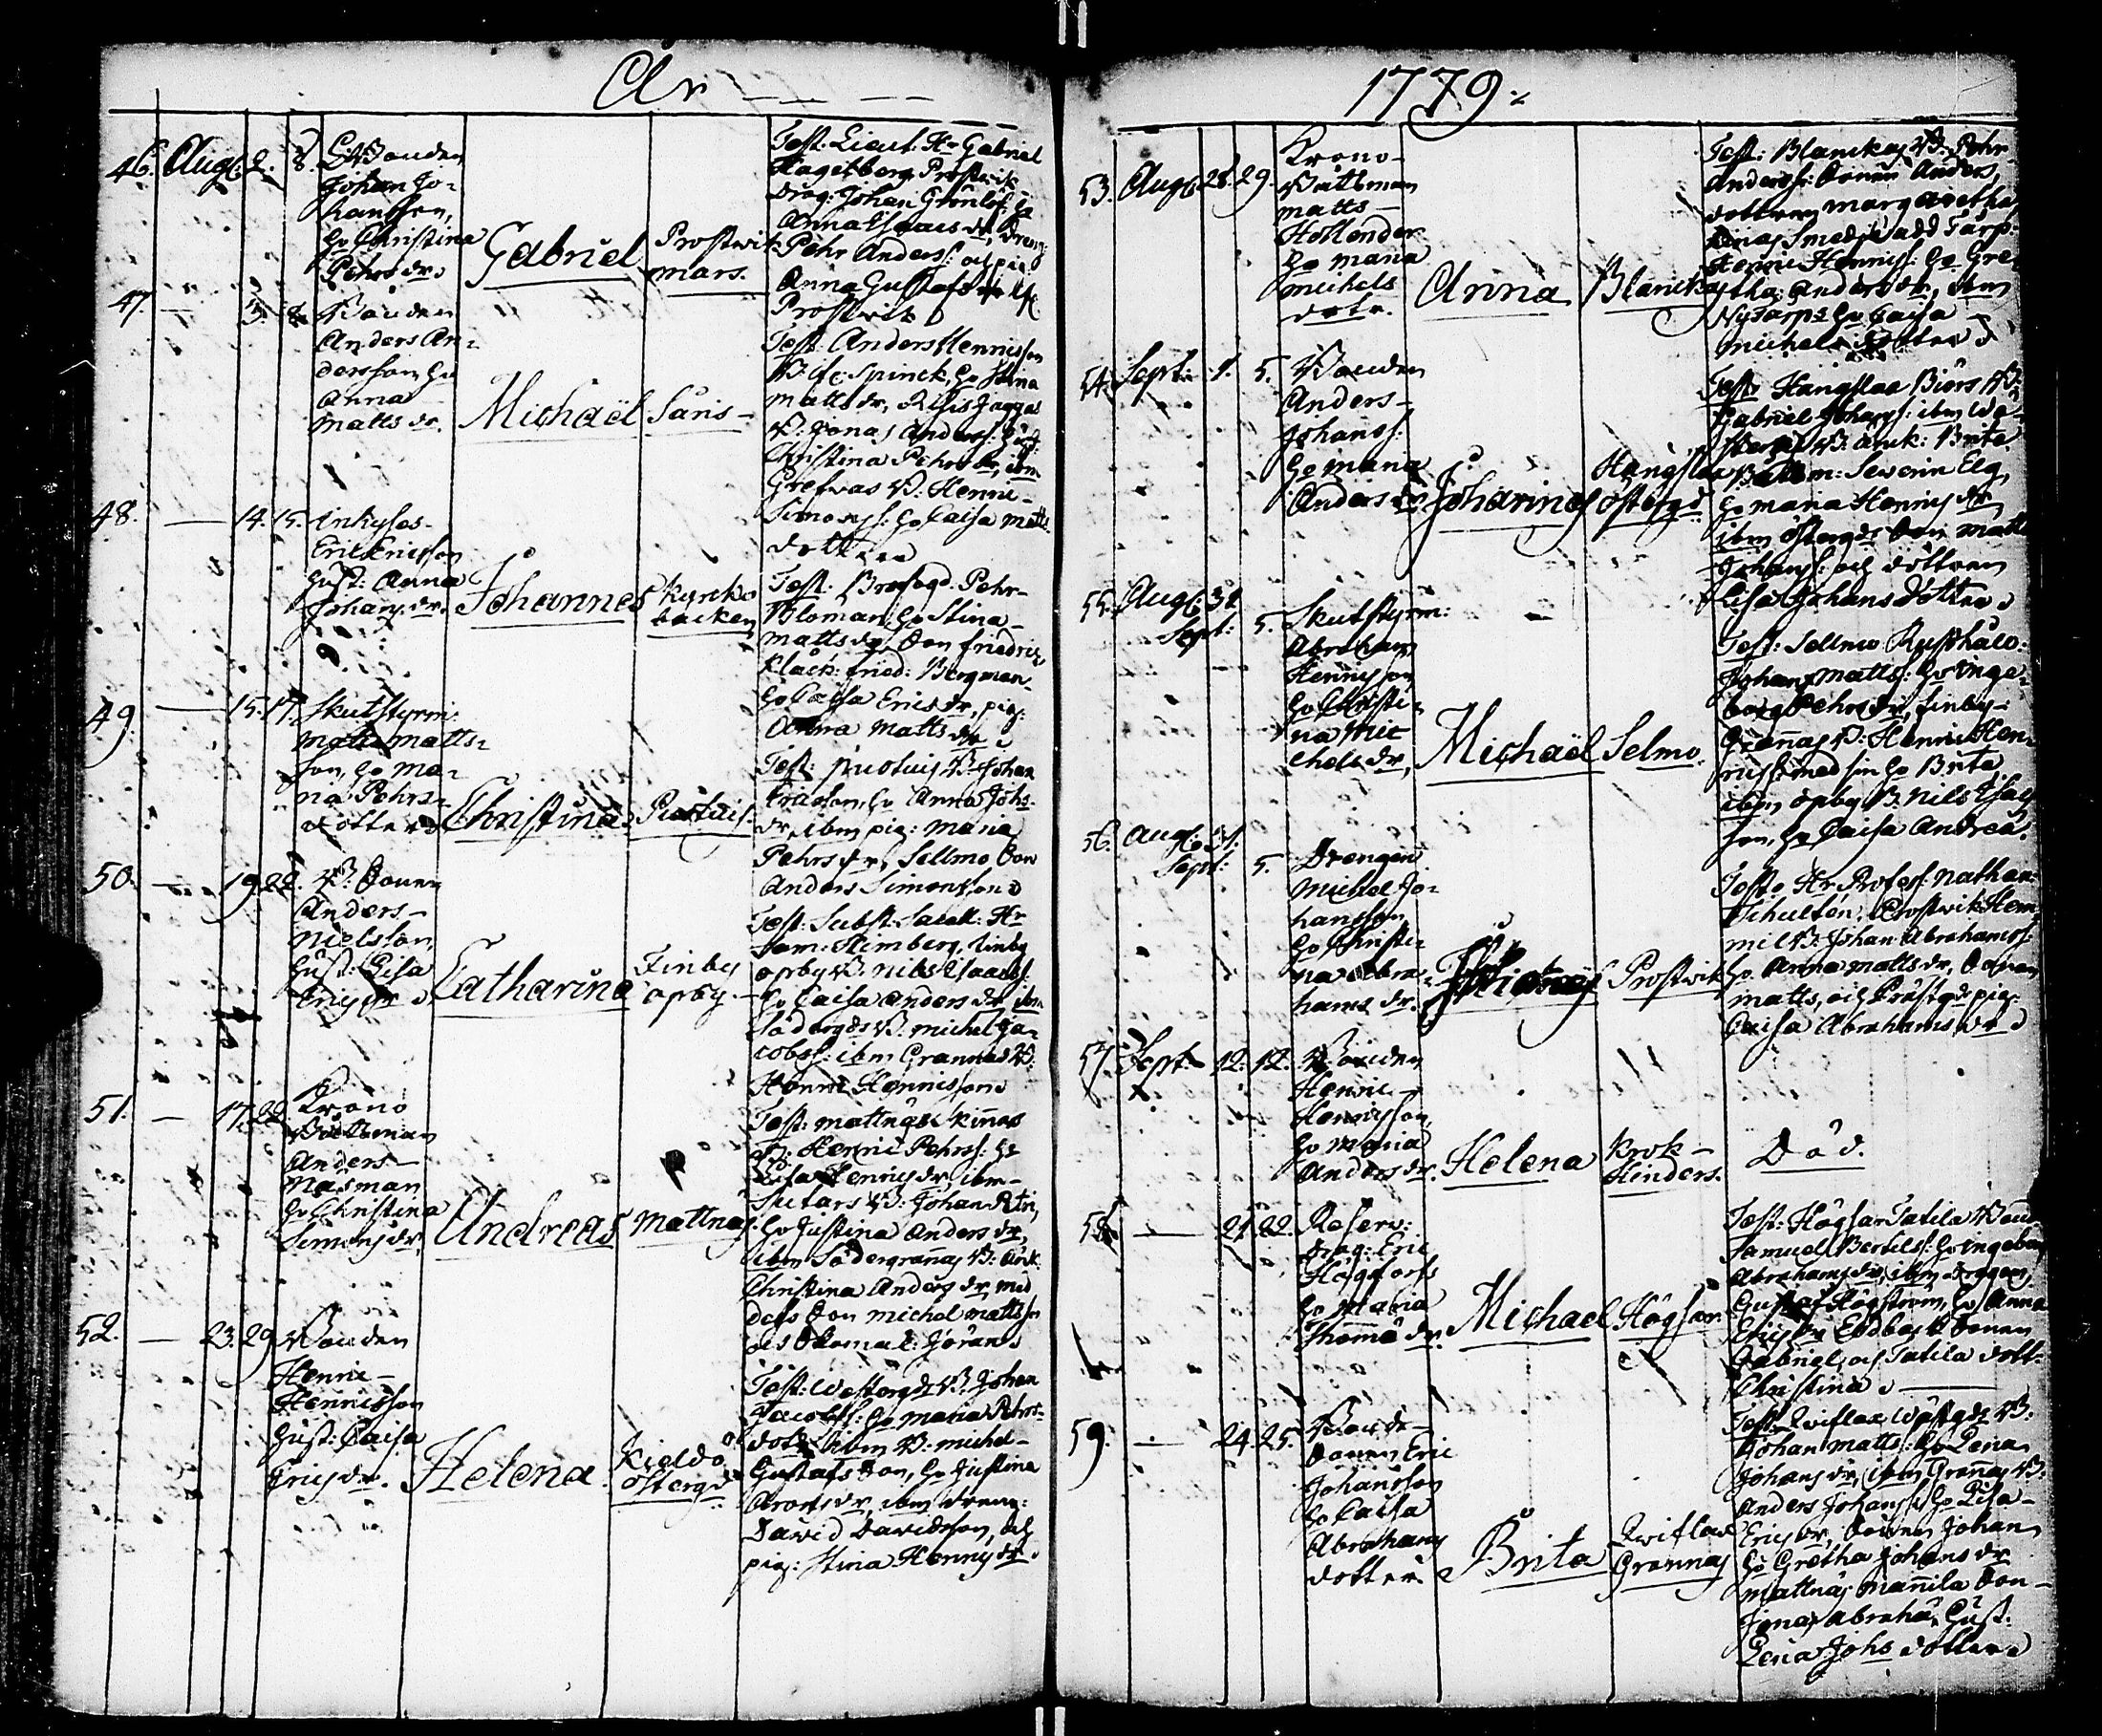 År
46. Aug. 2. 8.
Bonden
Johan Jo-
hansson,
Ho Christina
Pehrs dr.
Gabriel
Prostvik
mars.
Test. Lieut. Hr Gabriel
Hagelberg Prostvik
Drag: Johan Grönlöf: Ho
Anna Isaacs dr, Dreng:
Pehr Anders: och pig:
Anna Gustafs dr
Prostvik
47. — 3. 8.
Bonden
Anders An-
dersson, Ho
Anna
Matts dr.
Michaël
Saris
Test. Anders Hennisson
Spinck, Ho Stina
Matts dr,
B: Jonas Anderss:
Christina Pehrs dr, ibm
Grefvas B: Henric
Simonss: Ho Caisa Matts
dotter
48. — 14. 15.
Inhyses
Eric Ericsson
Hust: Anna
Johans dr.
Johannes
Kyrcko
backen
Test. Pehr
Bloman, Ho Stina
Matts dr, Son Friedric,
Klåck: Fried: Bergman
Ho Caisa Erics dr, pig:
Anna Matts dr
49. — 15. 17.
Skutstyrm:
Matts Matts-
son, Ho Ma-
ria Pehrs-
dotter
Christina
Test: B: Johan
Ericsson, Ho Anna Johs
dr, ibm pig: Maria
Pehrs dr, Sellmo Son
Anders Simonsson
50. — 19. 22.
B: Sonen
Anders
Nielsson,
Hust: Lisa
Erics dr
Catharina
Finby
opby
Test: Subst. Sacell: Hr
Sam: Heimberg, Finby
opby B: Nils Isaacss:
Ho Caisa Anders dr ibm
Södergds B: Michel Ja-
cobss: ibm Grannas B:
Henric Hennisson
51. — 17. 22.
Krono
Båttsman
Anders
Masman
Ho Christina
Simons dr.
Andreas
Mattnäs
Test: Mattnäs Kinnas
B: Henric Pehrss: Ho
Lisa Henrics dr, ibm
Sutars B: Johan
Ho Justina Anders dr,
ibm Södergrannas B: Änk:
Christina Anders dr, med
dess Son Michel Mattsson
Jörans
52. — 23. 29
Bonden
Henric
Hennisson
Hust: Caisa
Erics dr.
Helena
Kieldo
Östergd
Test: Westergds B: Johan
Jacobss: Ho Maria Pehrs-
dott: ibm B: Michel
Gustafs Son, Ho Justina
Arons dr ibm dreng:
David Davidsson, och
pig: Stina Henrics dr
1779
53. Aug. 28. 29.
Krono-
Båttsman
Matts
Hollender
Ho Maria
Michels
dotr.
Anna
Blancka
Test: Blanckas B. Pehr
Anderss: Sonen Anders,
dottern Margaretha
Henric Henrics: Ho Gre-
tha Anders dr, ibm
Nytorps Ho Caisa
Michels Dotter
54. Sept: 1. 5.
Bonden
Anders
Johanss:
Ho Maria
Anders dr
Johannes
Hangslax
Östergd
Test: Hangslax Biörs B:
Gabriel Johans: ibm We-
stergd B: änk: Brita
Båttsm: Severin Elg,
Ho Maria Henrics dr
ibm Östergds Son Matts
Johans: och dottren
Lisa Johans dotter
55. Aug. 31
Sept: 5.
Skutstyrm:
Abraham
Hennisson
Ho Christi-
na Mic
chels dr,
Michaël
Selmo.
Test: Sellmo Rusthåll:
Johan Matts: Ho Inge-
borg Pehrs dr, Finby
Grannas B: Henric Hen-
ricss: med sin Ho Brita
ibm opby B. Nils Isacs
son, Ho Caisa Andreæ
56. Aug: 31.
Sept: 5.
Drengen
Michel Jo-
hansson
Ho Christi-
na Abra-
hams dr.
Prostvik
Test: Hr Profess: Nathan:
Schultén, Prostvik Hem-
mil B: Johan Abrahamss:
Ho Anna Matts dr, Sonen
Matts, och Prästgds pig:
Caisa Abrahams dr
57. Sept: 12. 12.
Bonden
Henric
Henricsson,
Ho Maria
Anders dr.
Helena
Krok-
Hinders.
Död.
58. — 21. 22.
Reserv:
Drag: Eric
Högfors
Ho Maria
Thomæ dr.
Michael
Högsar
Test: Högsar Tatila Bond
Samuel Bertils: Ho Ingeborg
Abrahams dr, ibm Dragon,
Gustaf Högström, Ho Anna
Erics dr Sonen
Gabriel, och Tatila dott:
Christina
59. — 24. 25.
Bonde
Sonen Eric
Johansson
Ho Caisa
Abrahams
dotter
Brita
Qviflax
Grannas
Test: Qviflax Wästgds B:
Johan Matts: Ho Lena
Johans dr, ibm Grannas B:
Anders Johanss: Ho Lisa
Erics dr, Sonen Johan
Ho Gretha Johans dr
Mattnäs Mannila Son
Jonas Abrahā, Hust:
Lena Johs dotter